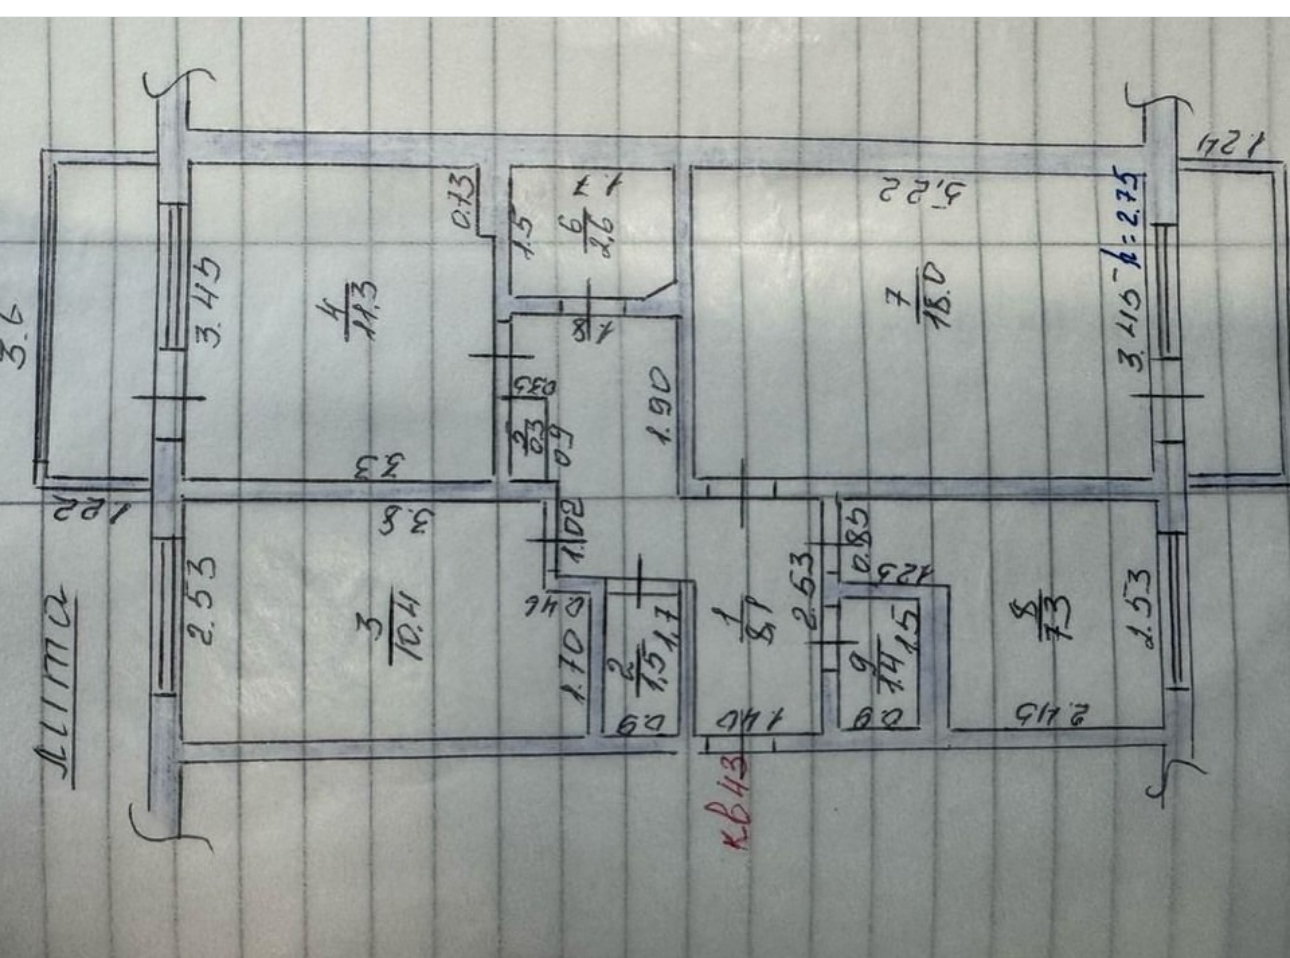 лита
кв 43
h=2.75
3.6
1.22
3.45
4
11.3
0.73
3.3
1.5
1.7
6
2,6
1.8
0.35
0.3
0.9
1.90
5,22
7
18.0
3.45
1.24
2.53
3.8
3
10.4
1.02
0.46
1.70
2
1,5
1,7
0.9
1
8,1
2.53
1.40
0.85
1.25
9
1.4
1.5
0.9
8
7.3
2.53
2.45